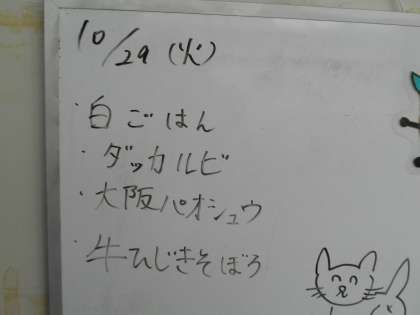 10/29(火)
・白ごはん
・ダッカルビ
・大阪パオシュウ
・牛ひじきそぼろ